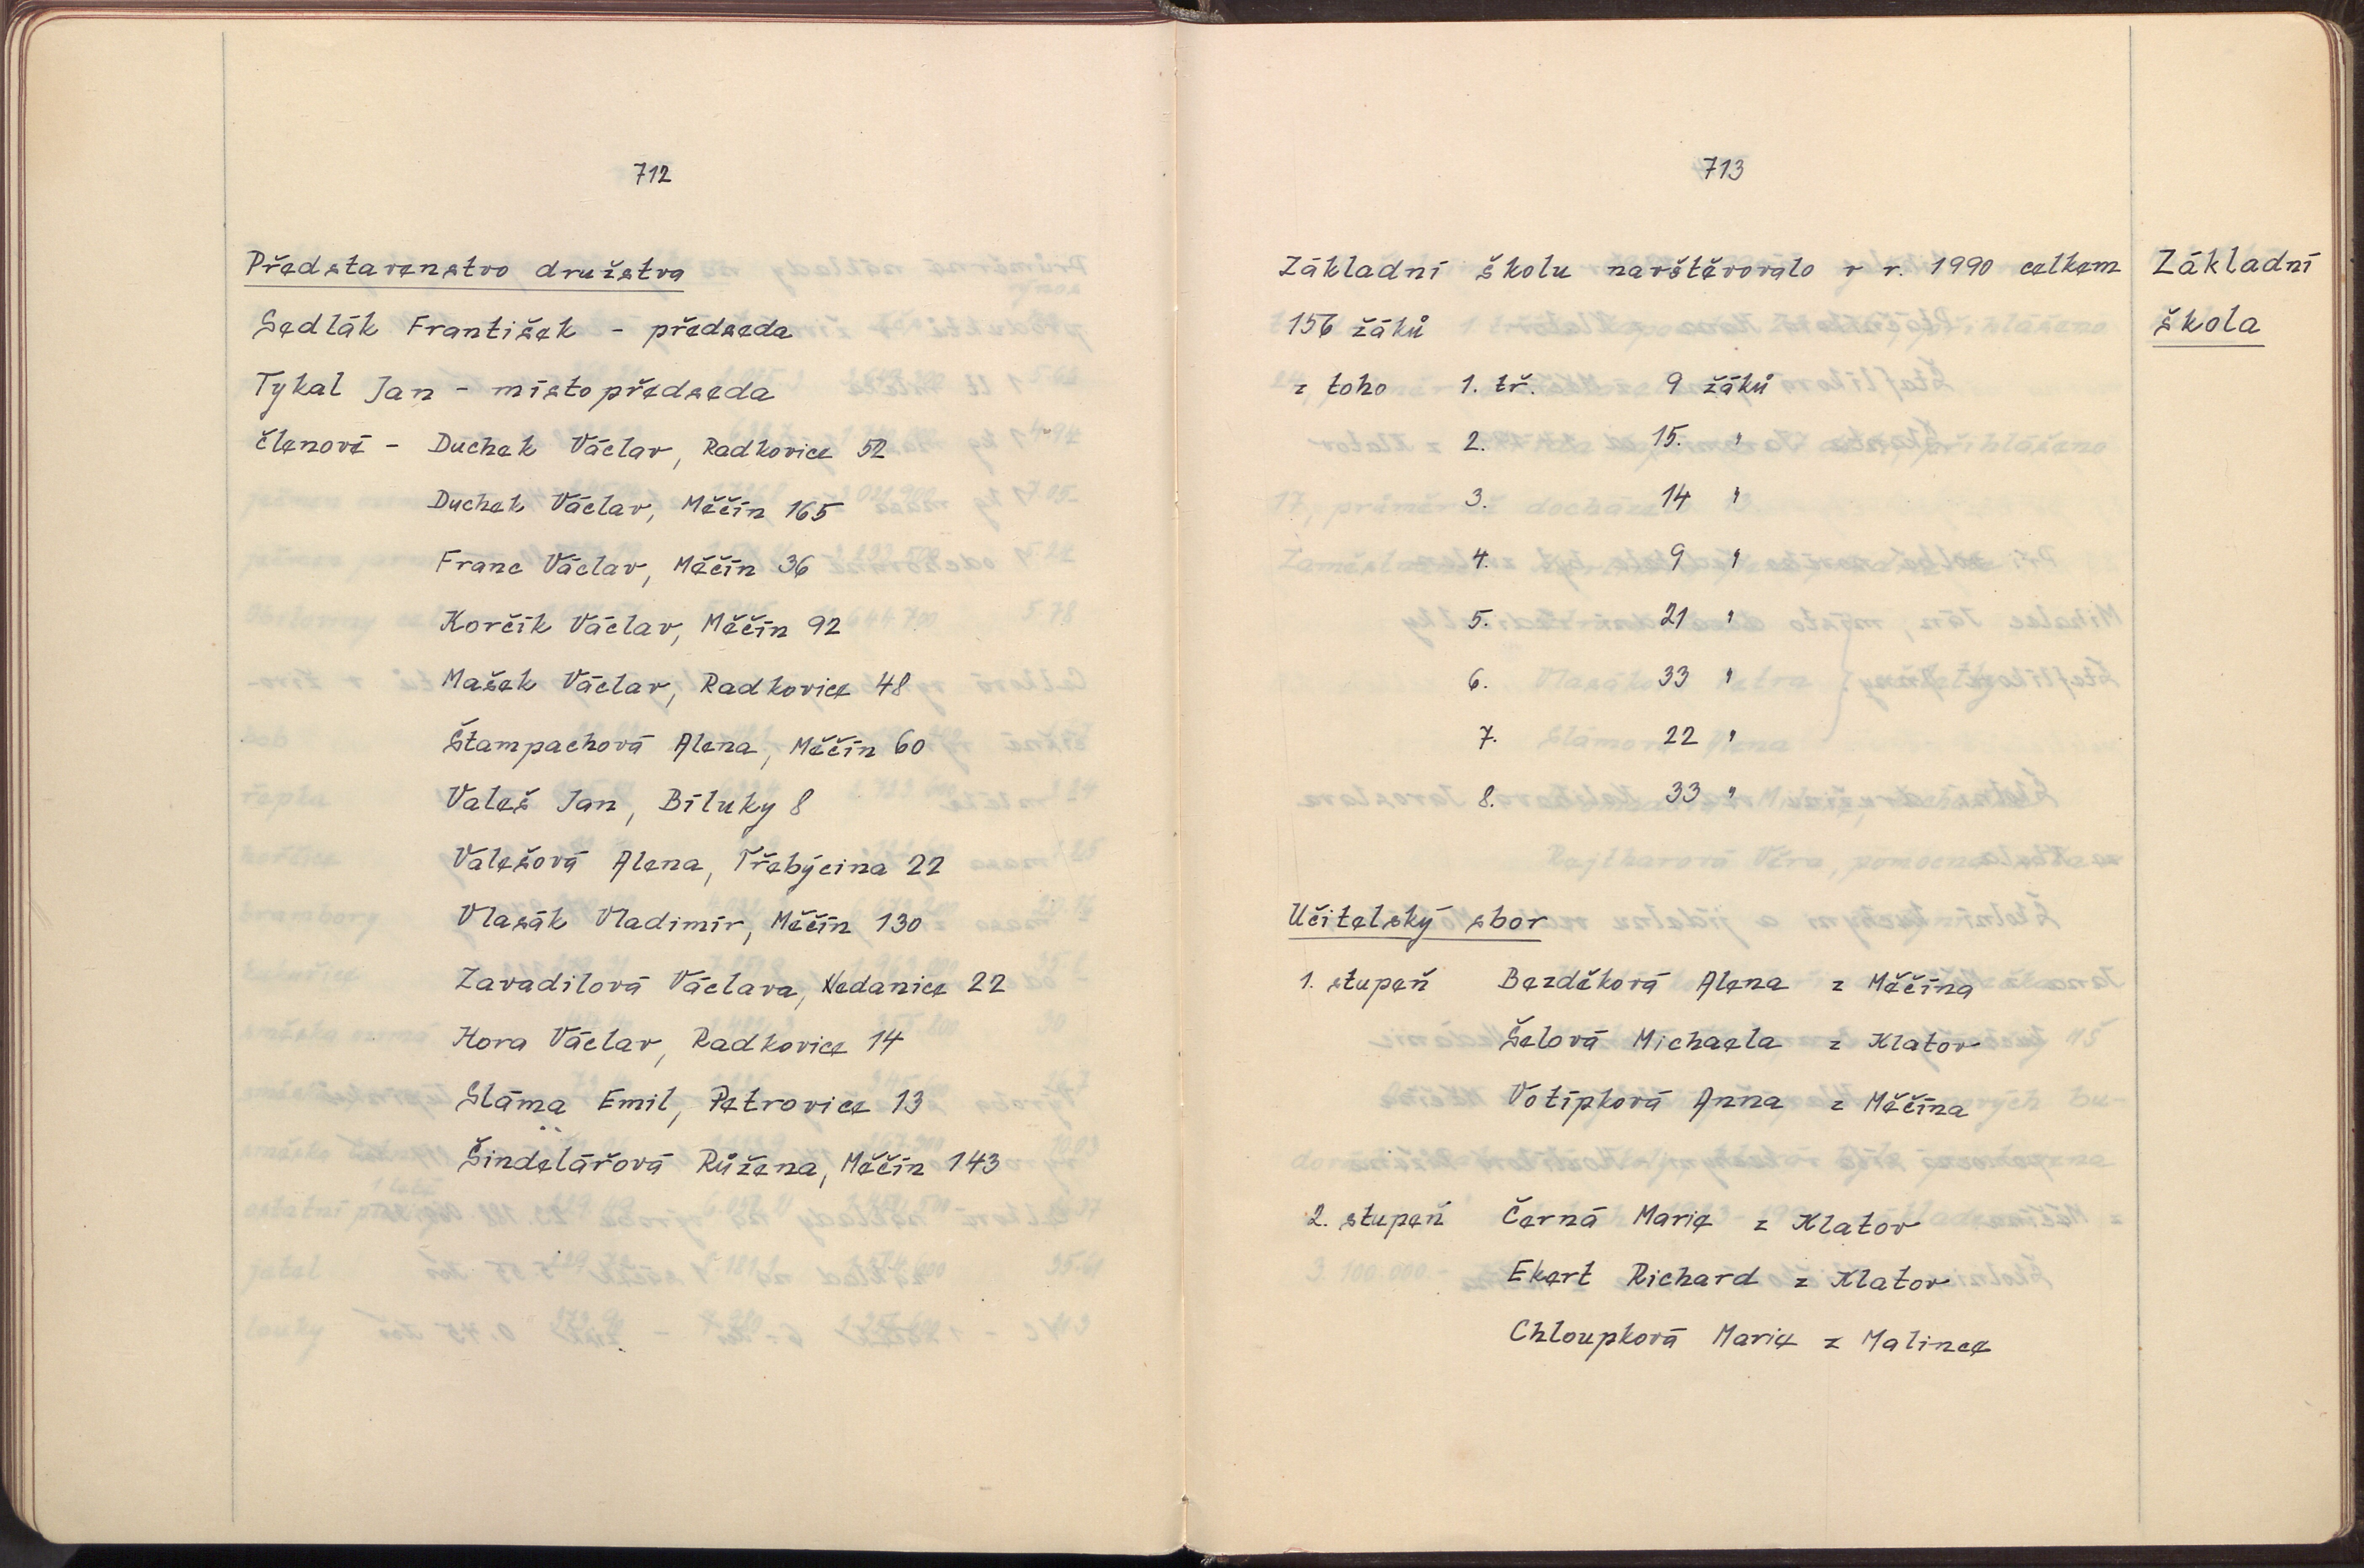 712
Představenstvo družstva
Sedlák František - předseda
Tykal Jan - místopředseda
členové - Duchek Václav, Radkovice 52
Duchek Václav, Měčín 165
Franc Václav, Měčín 36
Korčík Václav, Měčín 92
Mašek Václav, Radkovice 48
Štampachová Alena, Měčín 60
Valeš Jan, Bíluky 8
Valešová Alena, Třebýcina 22
Vlasák Vladimír, Měčín 130
Zavadilová Václava, Nedanice 22
Hora Václav, Radkovice 14
Sláma Emil, Petrovice 13
Šindelářová Růžena, Měčín 143
713
Základní školu navštěvovalo v r. 1990 celkem
156 žáků
z toho 1. tř. 9 žáků
2. 15. "
3. 14 "
4. 9 "
5. 21 "
6. 33 "
7. 22 "
8. 33 "
Učitelský sbor
1. stupeň Bezděková Alena z Měčína
Šelová Michaela z Klatov
Votípková Anna z Měčína
2. stupeň Černá Marie z Klatov
Ekert Richard z Klatov
Chloupková Marie z Malince
Základní
škola